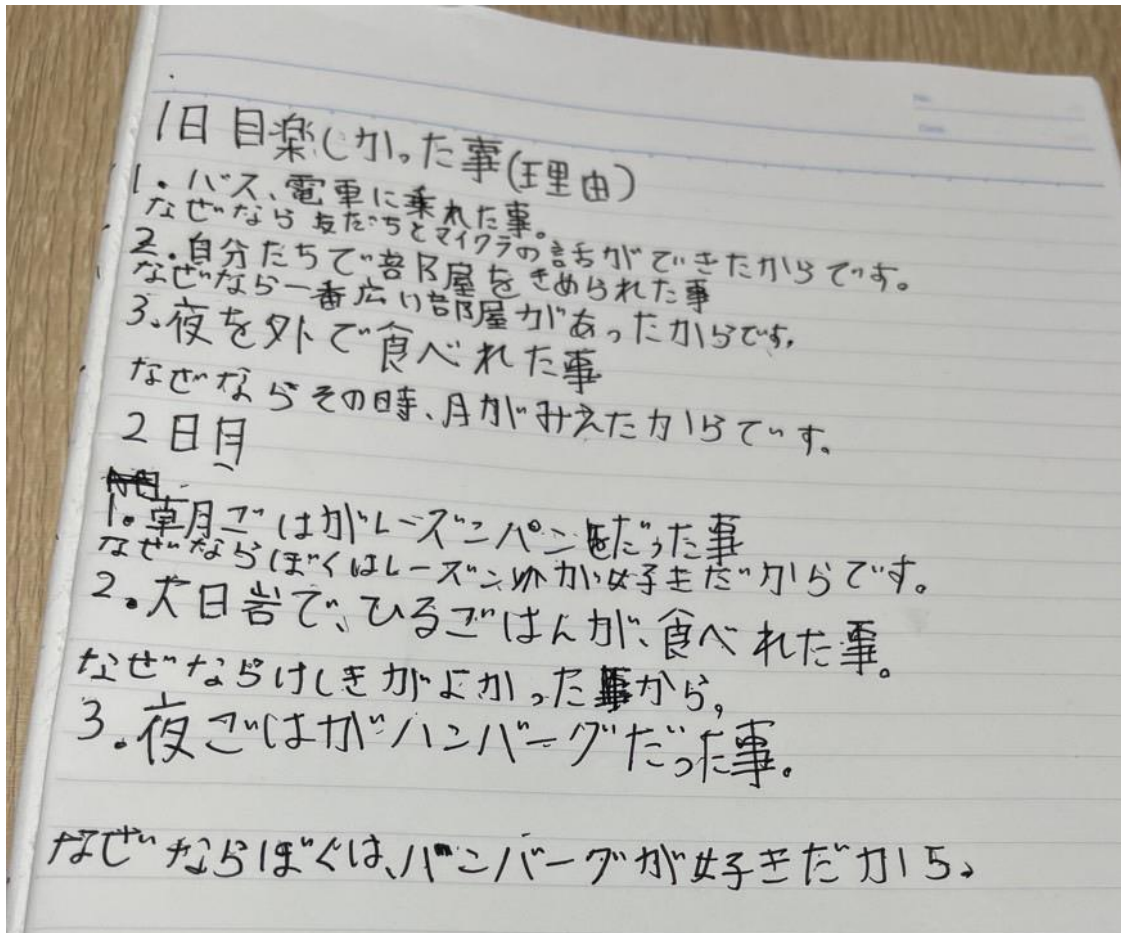 1日目楽しかった事(理由)
1.バス、電車に乗れた事。
なぜなら友だちとマイクラの話ができたからです。
2.自分たちで部屋をきめられた事
なぜなら一番広い部屋があったからです。
3.夜を外で食べれた事
なぜならその時、月がみえたからです。
2日目
1.朝ごはがレーズンパンだった事
なぜならぼくはレーズンが好きだからです。
2.大日岩で、ひるごはんが、食べれた事。
なぜならけしきがよかったから。
3.夜ごはがハンバーグだった事。
なぜならぼくは、ハンバーグが好きだから。